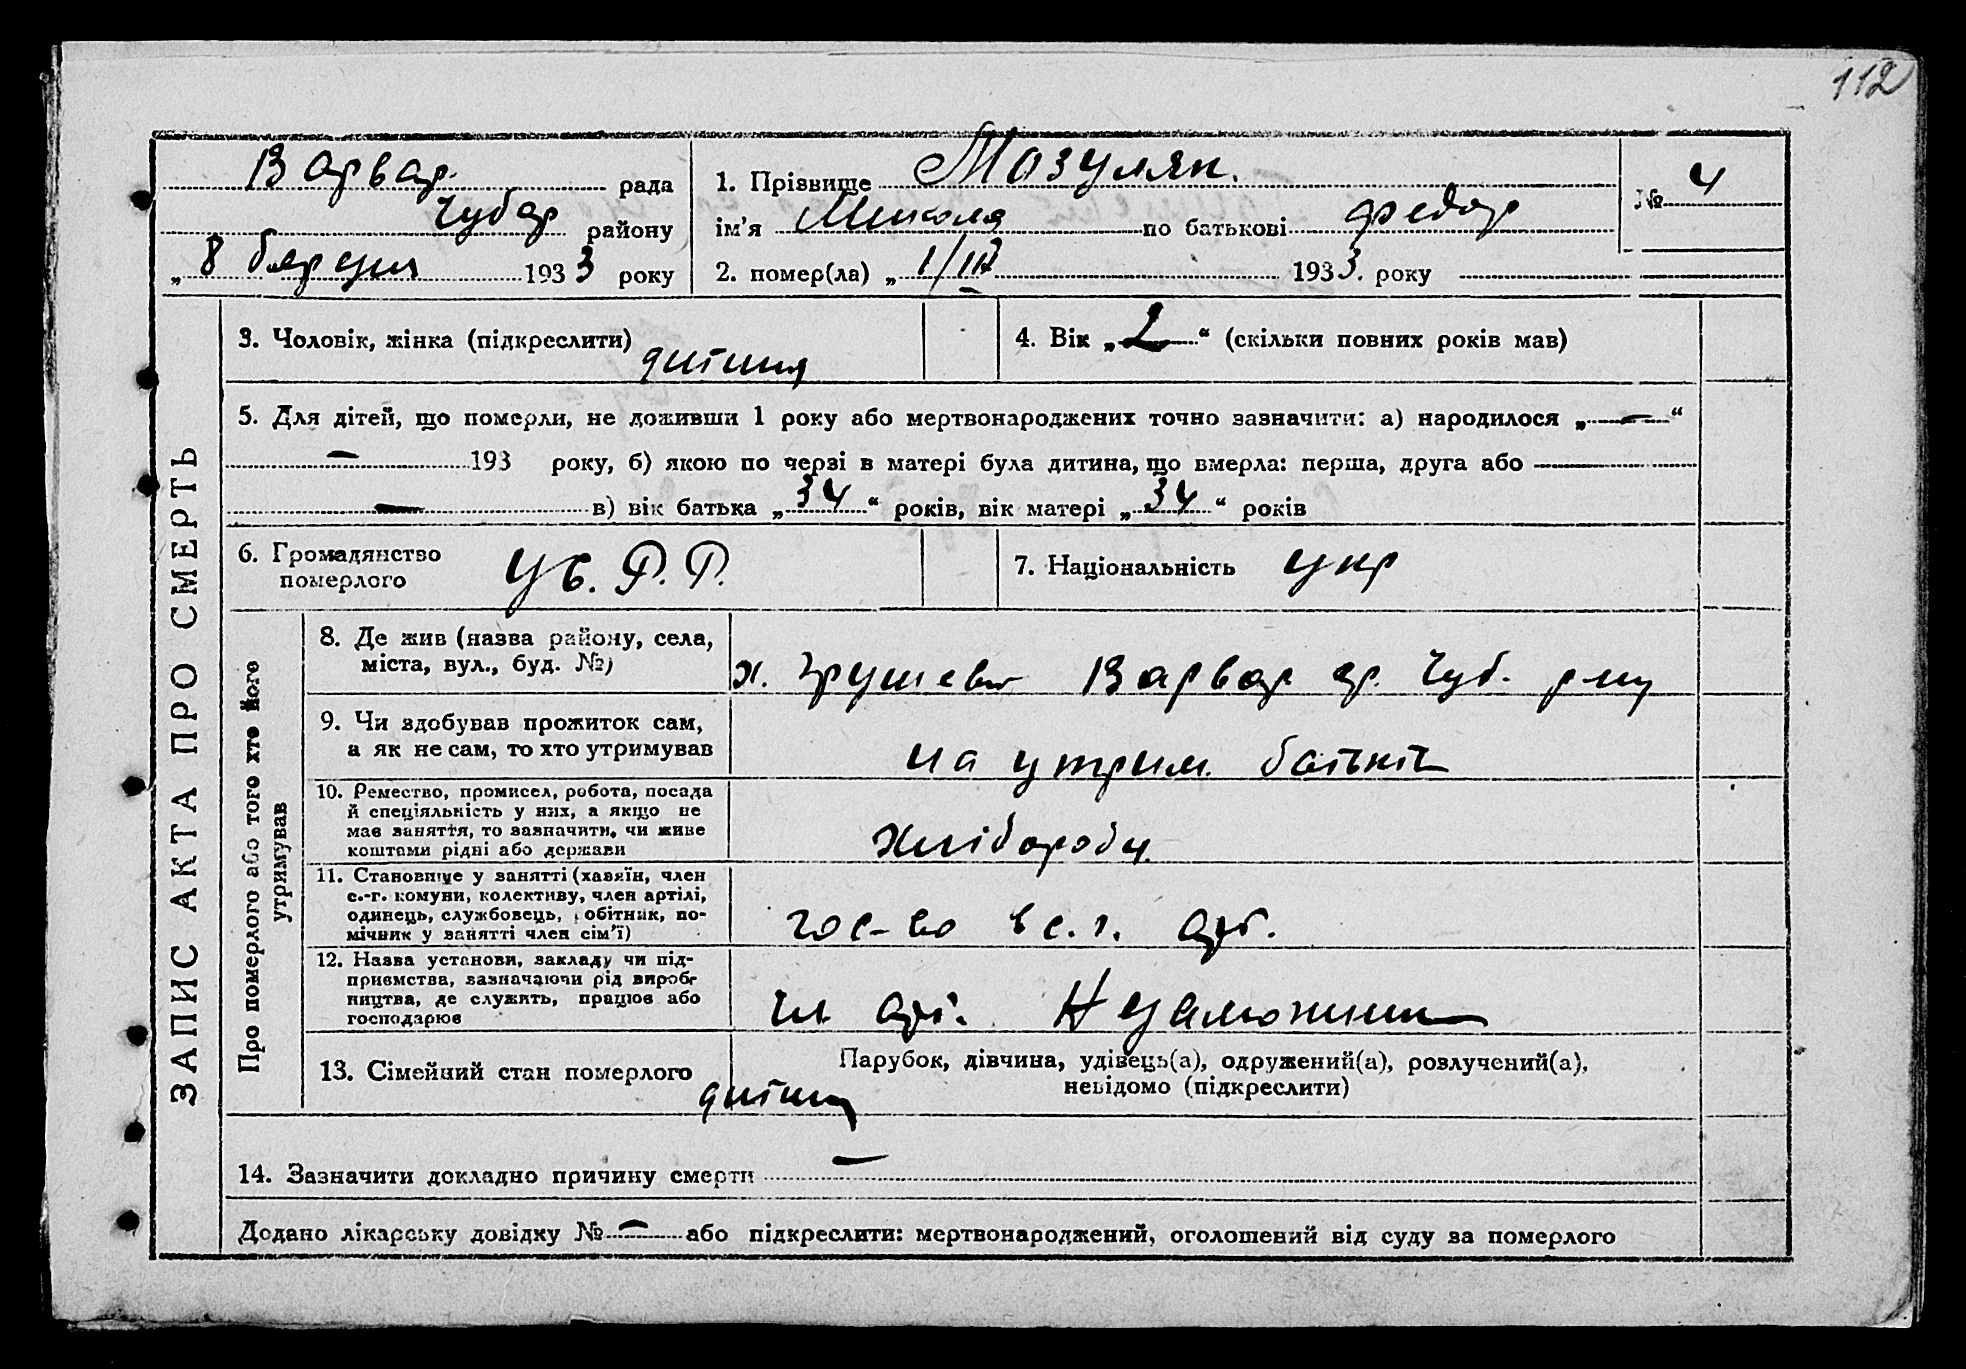 112
Варвар. рада
Чубар району
„ 8 березня 1933 року
1. Прізвище Мазуляк.
ім'я Микола по батькові Федор
2. помер(ла) „ 1/III 1933. року
№ 4
ЗАПИС АКТА ПРО СМЕРТЬ
3. Чоловік, жінка (підкреслити) дитина
4. Вік „ 2 “ (скільки повних років мав)
5. Для дітей, що померли, не доживши 1 року або мертвонароджених точно зазначити: а) народилося „ — “
— 193 року, б) якою по черзі в матері була дитина, що вмерла: перша, друга або
— в) вік батька „ 34 “ років, вік матері „ 34 “ років
6. Громадянство
померлого
7. Національність укр
Про померлого або того хто його
утримував
8. Де жив (назва району, села,
міста, вул., буд. №)
х. Грушев Варвар ср. Чуб. р-ну
9. Чи здобував прожиток сам,
а як не сам, то хто утримував
на утрим. батьків
10. Ремество, промисел, робота, посада
й спеціяльність у них, а якщо не
має заняття, то зазначити, чи живе
коштами рідні або держави
Хлібороби
11. Становище у занятті (хазяїн, член
с.-г. комуни, колективу, член артілі,
одинець, службовець, робітник, по-
мічник у занятті член сім'ї)
гос-во в с. г. арт.
12. Назва установи, закладу чи під-
приємства, зазначаючи рід вироб-
ництва, де служить, працює або
господарює
чл арт. Незаможник
13. Сімейний стан померлого дитина
Парубок, дівчина, удівець(а), одружений(а), розлучений(а),
невідомо (підкреслити)
14. Зазначити докладно причину смерти —
Додано лікарську довідку № — або підкреслити: мертвонароджений, оголошений від суду за померлого